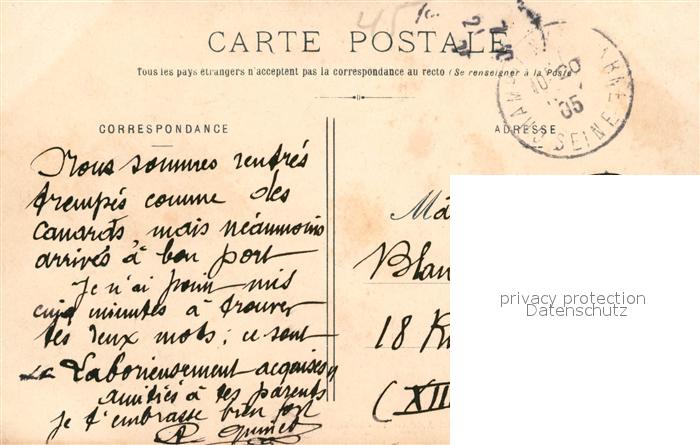 45
CARTE POSTALE
Tous les pays étrangers n'acceptent pas la correspondance au recto (Se renseigner à la Poste
CORRESPONDANCE
ADRESSE
05
SEINE
Nous sommes rentrés
trempés comme des
canards, mais néanmoins
arrivés à bon port
Je n'ai point mis
cinq minutes à trouver
tes deux mots; ce sont
"Laborieusement acquises"
amitiés à tes parents
Je t'embrasse bien fort
Blan
18 R
(XII
privacy protection
Datenschutz